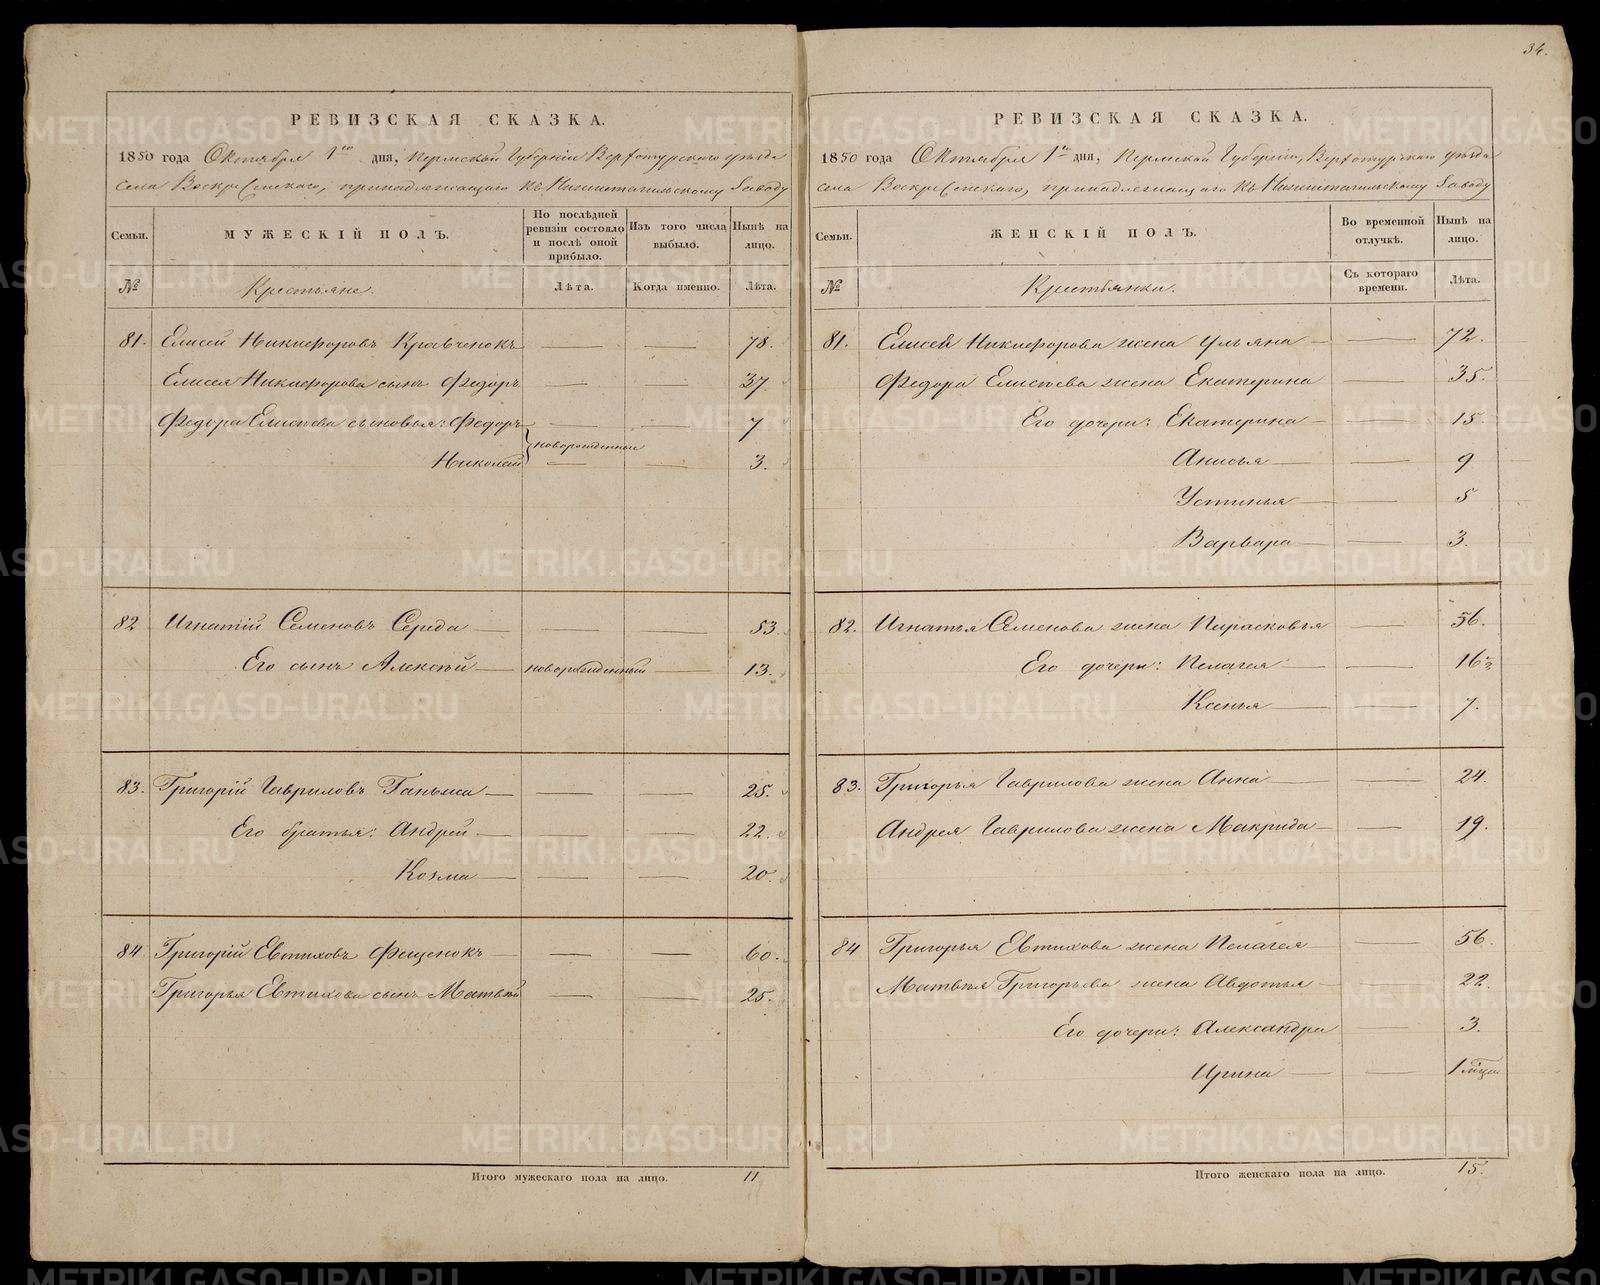 34.
РЕВИЗСКАЯ СКАЗКА.
1850 года Октября 1го дня, Пермской Губернiи Верхотурскаго уѣзда
села Воскресенскаго, принадлежащаго къ Нижнетагильскому Заводу
Семьи.
МУЖЕСКIЙ ПОЛЪ.
По послѣдней ревизiи состояло и послѣ оной прибыло.
Изъ того числа выбыло.
Нынѣ на лицо.
№
Крестьяне.
Лѣта.
Когда именно.
Лѣта.
81. Елисей Никифоровъ Кравченокъ — — 78.
Елисея Никифорова сынъ Федоръ — — 37.
Федора Елисѣева сыновья: Федоръ — — 7
новорожденные
Николай — — 3.
82 Игнатiй Семеновъ Середа — — — 53.
Его сынъ Алексѣй — новорожденный — 13.
83. Григорiй Гавриловъ Ганьжа — — — 25.
Его братья: Андрей — — — 22.
Козма — — — 20.
84. Григорiй Евтиховъ Фещенокъ — — — 60.
Григорья Евтихова сынъ Матвѣй — — 25.
Итого мужескаго пола на лицо. 11
РЕВИЗСКАЯ СКАЗКА.
1850 года Октября 1го дня, Пермской Губернiи, Верхотурскаго уѣзда
села Воскресенскаго, принадлежащаго къ Нижнетагильскому Заводу
Семьи.
ЖЕНСКIЙ ПОЛЪ.
Во временной отлучкѣ.
Нынѣ на лицо.
№
Крестьянки.
Съ котораго времени.
Лѣта.
81. Елисея Никифорова жена Ульяна — — 72.
Федора Елисѣева жена Екатерина — 35.
Его дочери: Екатерина — — 15.
Анисья — — 9
Устинья — — 5
Варвара — — 3.
82. Игнатья Семенова жена Парасковья — 56.
Его дочери: Пелагея — — 16½
Ксенья — — 7.
83. Григорья Гаврилова жена Анна — — 24.
Андрея Гаврилова жена Макрида — — 19.
84 Григорья Евтихова жена Пелагея — — 56.
Матвѣя Григорьева жена Авдотья — — 22.
Его дочери: Александра — 3.
Ирина — — 1 мѣсяц
Итого женскаго пола на лицо. 15.
METRIKI.GASO-URAL.RU